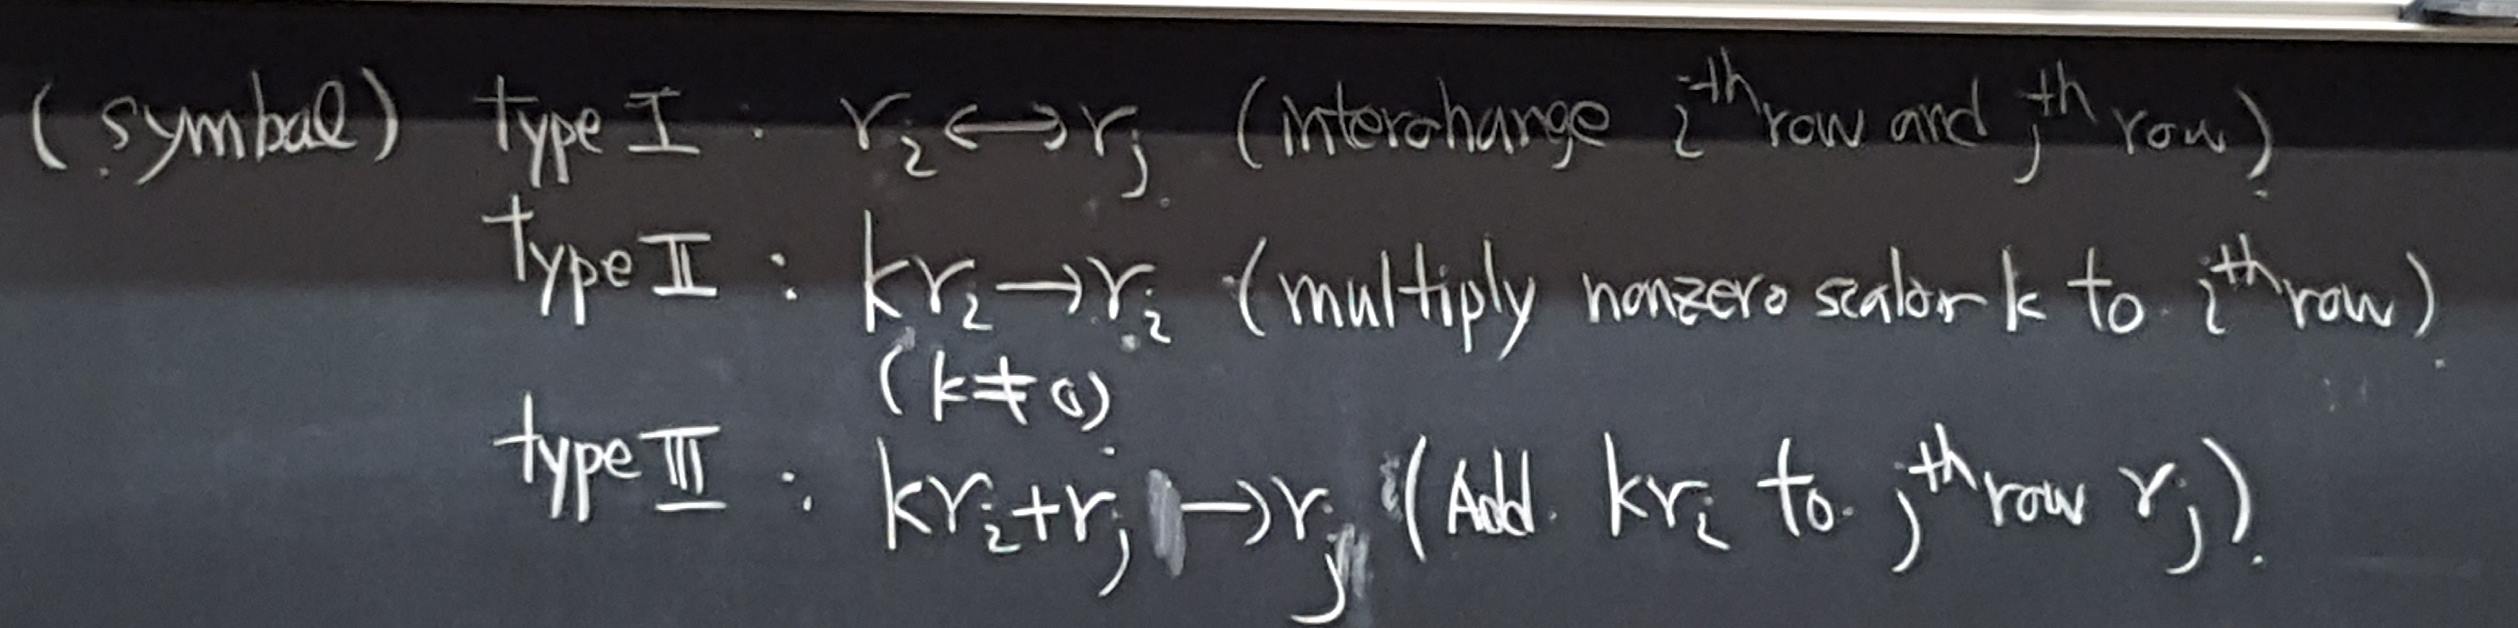 (symbol) type I : rᵢ ↔ rⱼ (interchange iᵗʰ row and jᵗʰ row)
type II : krᵢ → rᵢ (multiply nonzero scalar k to iᵗʰ row)
(k ≠ 0)
type III : krᵢ + rⱼ → rⱼ (Add krᵢ to jᵗʰ row rⱼ)